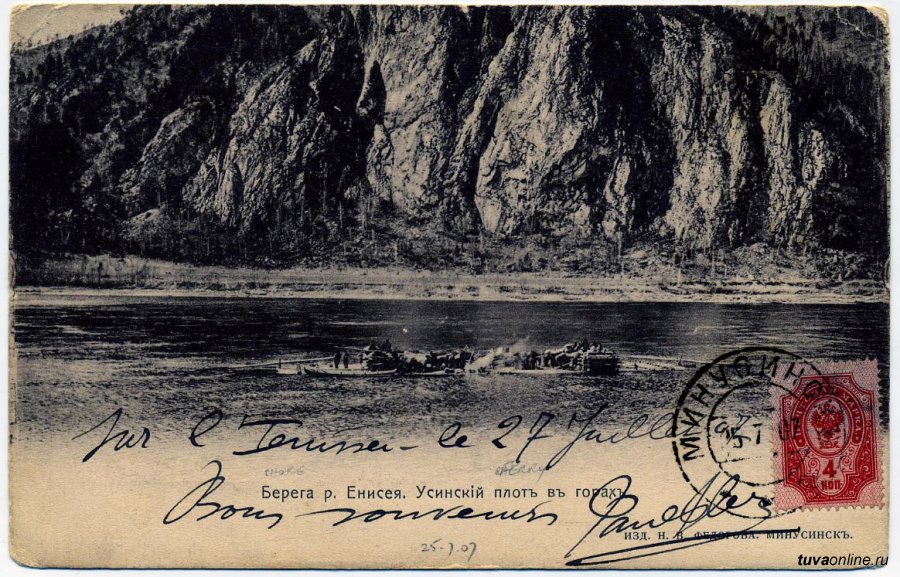 МИНУСИНС
4
КОП
Sur l'Ienissei - le 27 Juillet
SHORE FERRY
Берега р. Енисея. Усинскій плотъ въ горахъ.
Bons souvenirs
ИЗД. Н. В. ФЕДОРОВА. МИНУСИНСКЪ.
25-7.07
tuvaonline.ru